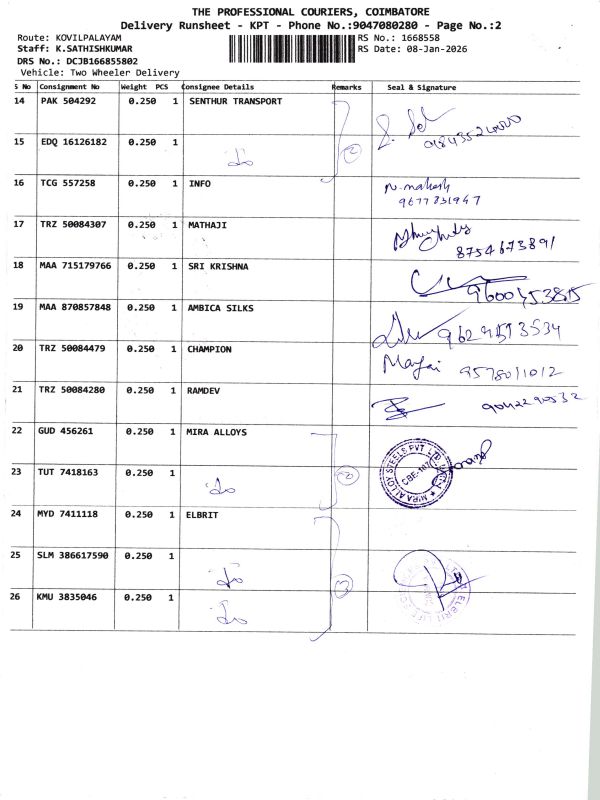 THE PROFESSIONAL COURIERS, COIMBATORE
Delivery Runsheet - KPT - Phone No.:9047080280 - Page No.:2
Route: KOVILPALAYAM RS No.: 1668558
Staff: K.SATHISHKUMAR RS Date: 08-Jan-2026
DRS No.: DCJB166855802
Vehicle: Two Wheeler Delivery
S No Consignment No Weight PCS Consignee Details Remarks Seal & Signature
14 PAK 504292 0.250 1 SENTHUR TRANSPORT
15 EDQ 16126182 0.250 1 2
16 TCG 557258 0.250 1 INFO N. mahesh
9677831947
17 TRZ 50084307 0.250 1 MATHAJI
8754673891
18 MAA 715179766 0.250 1 SRI KRISHNA
9600453815
19 MAA 870857848 0.250 1 AMBICA SILKS
9629513534
20 TRZ 50084479 0.250 1 CHAMPION
9578011012
21 TRZ 50084280 0.250 1 RAMDEV
9042290532
22 GUD 456261 0.250 1 MIRA ALLOYS
MIRA ALLOY STEELS PVT LTD
23 TUT 7418163 0.250 1 2
24 MYD 7411118 0.250 1 ELBRIT
25 SLM 386617590 0.250 1 3
26 KMU 3835046 0.250 1
ELBRIT